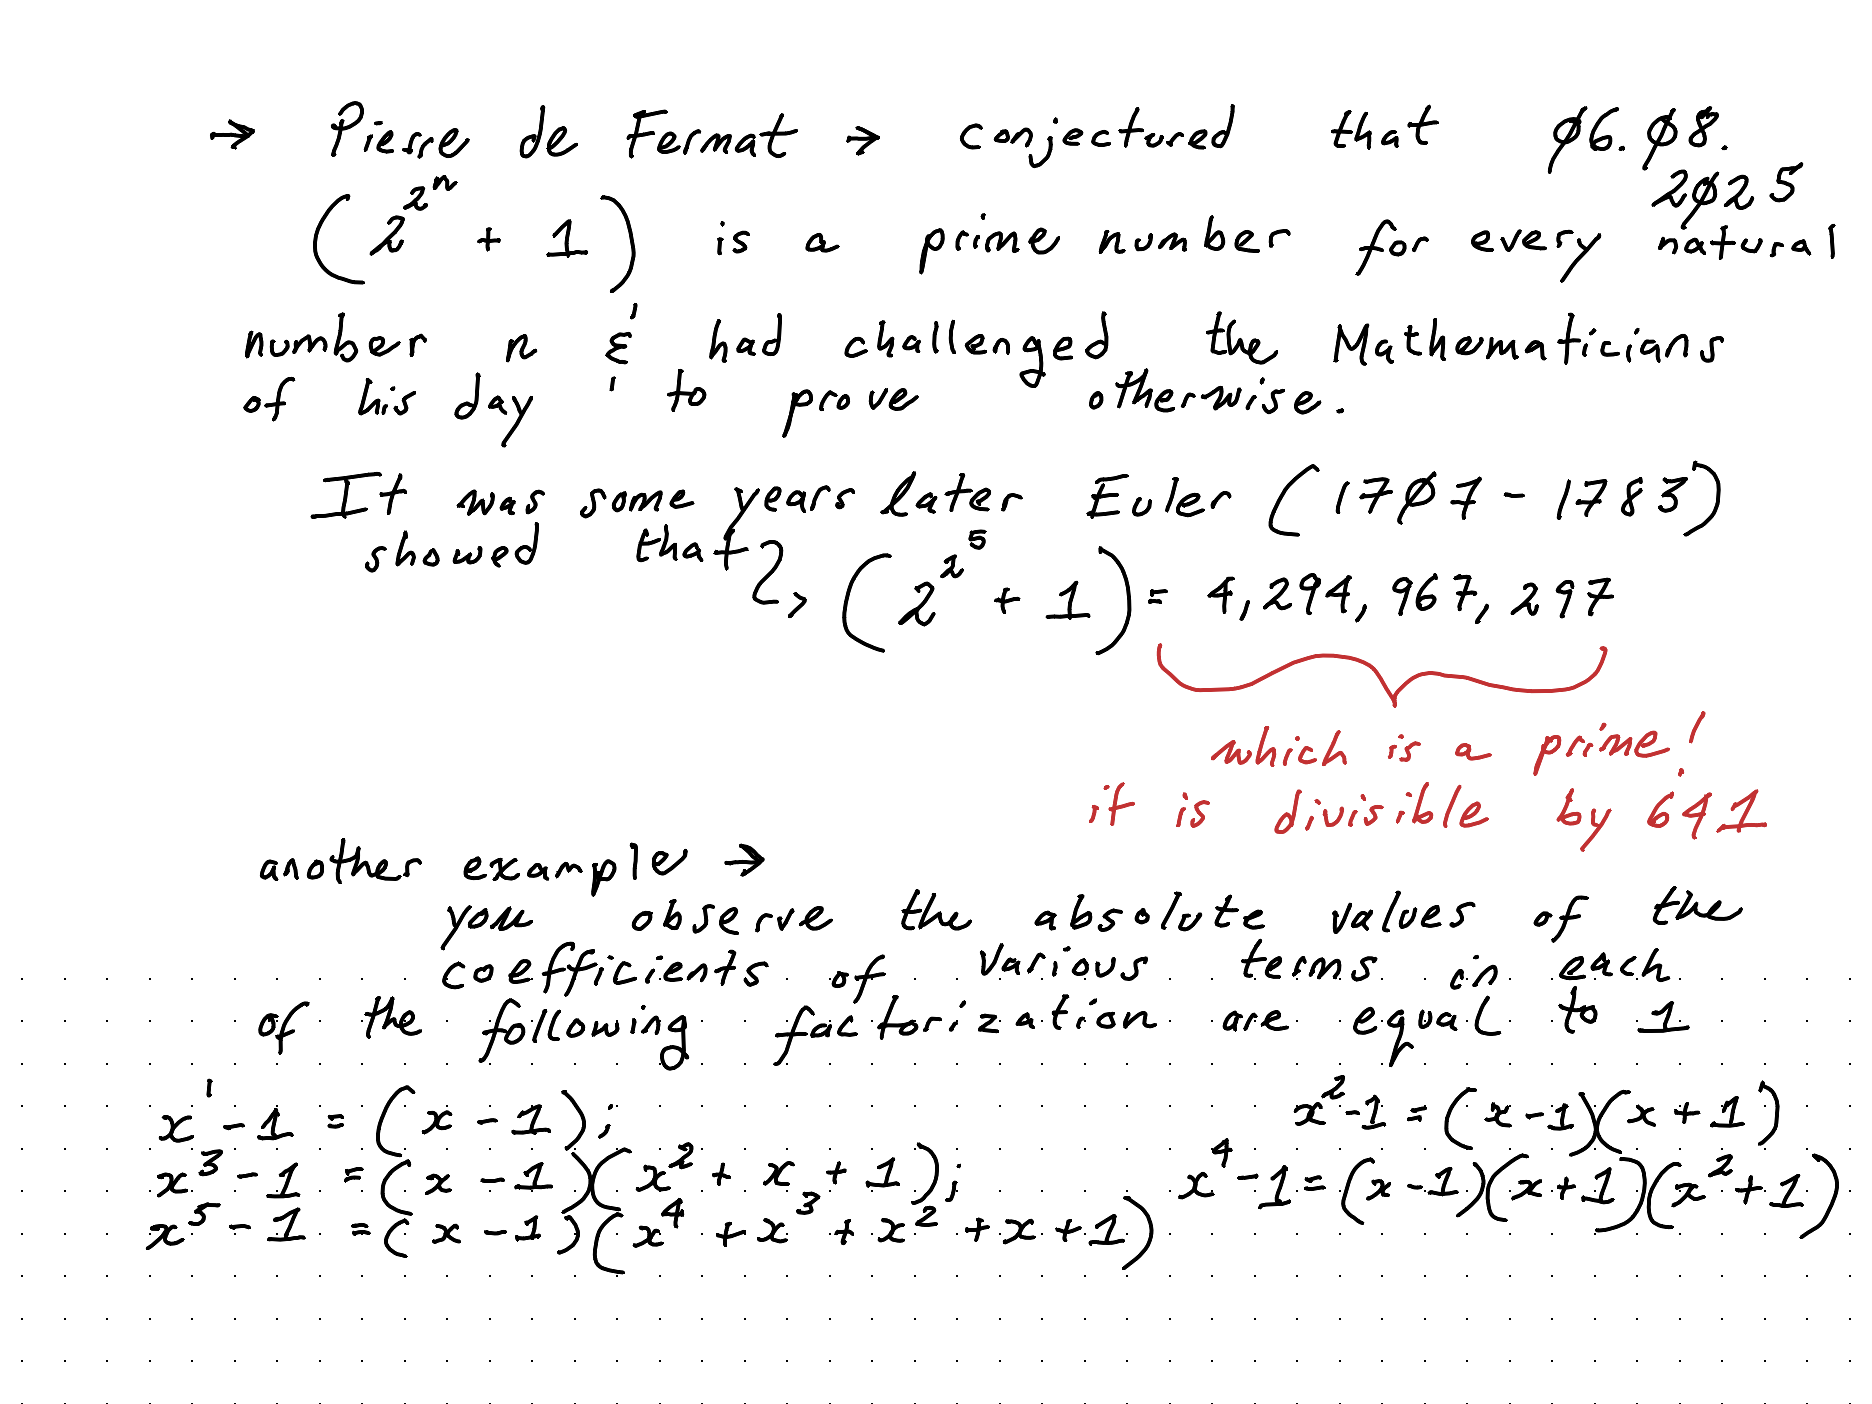 → Pierre de Fermat → conjectured that ø6.ø8.
2ø25
(2^2^n + 1) is a prime number for every natural
number n & had challenged the Mathematicians
of his day to prove otherwise.
It was some years later Euler (17ø7 - 1783)
showed that
(2^2^5 + 1) = 4,294,967,297
which is a prime!
it is divisible by 641
another example →
you observe the absolute values of the
coefficients of various terms in each
of the following factorization are equal to 1
x^1 - 1 = (x - 1); x^2 - 1 = (x - 1)(x + 1)
x^3 - 1 = (x - 1)(x^2 + x + 1); x^4 - 1 = (x - 1)(x + 1)(x^2 + 1)
x^5 - 1 = (x - 1)(x^4 + x^3 + x^2 + x + 1)